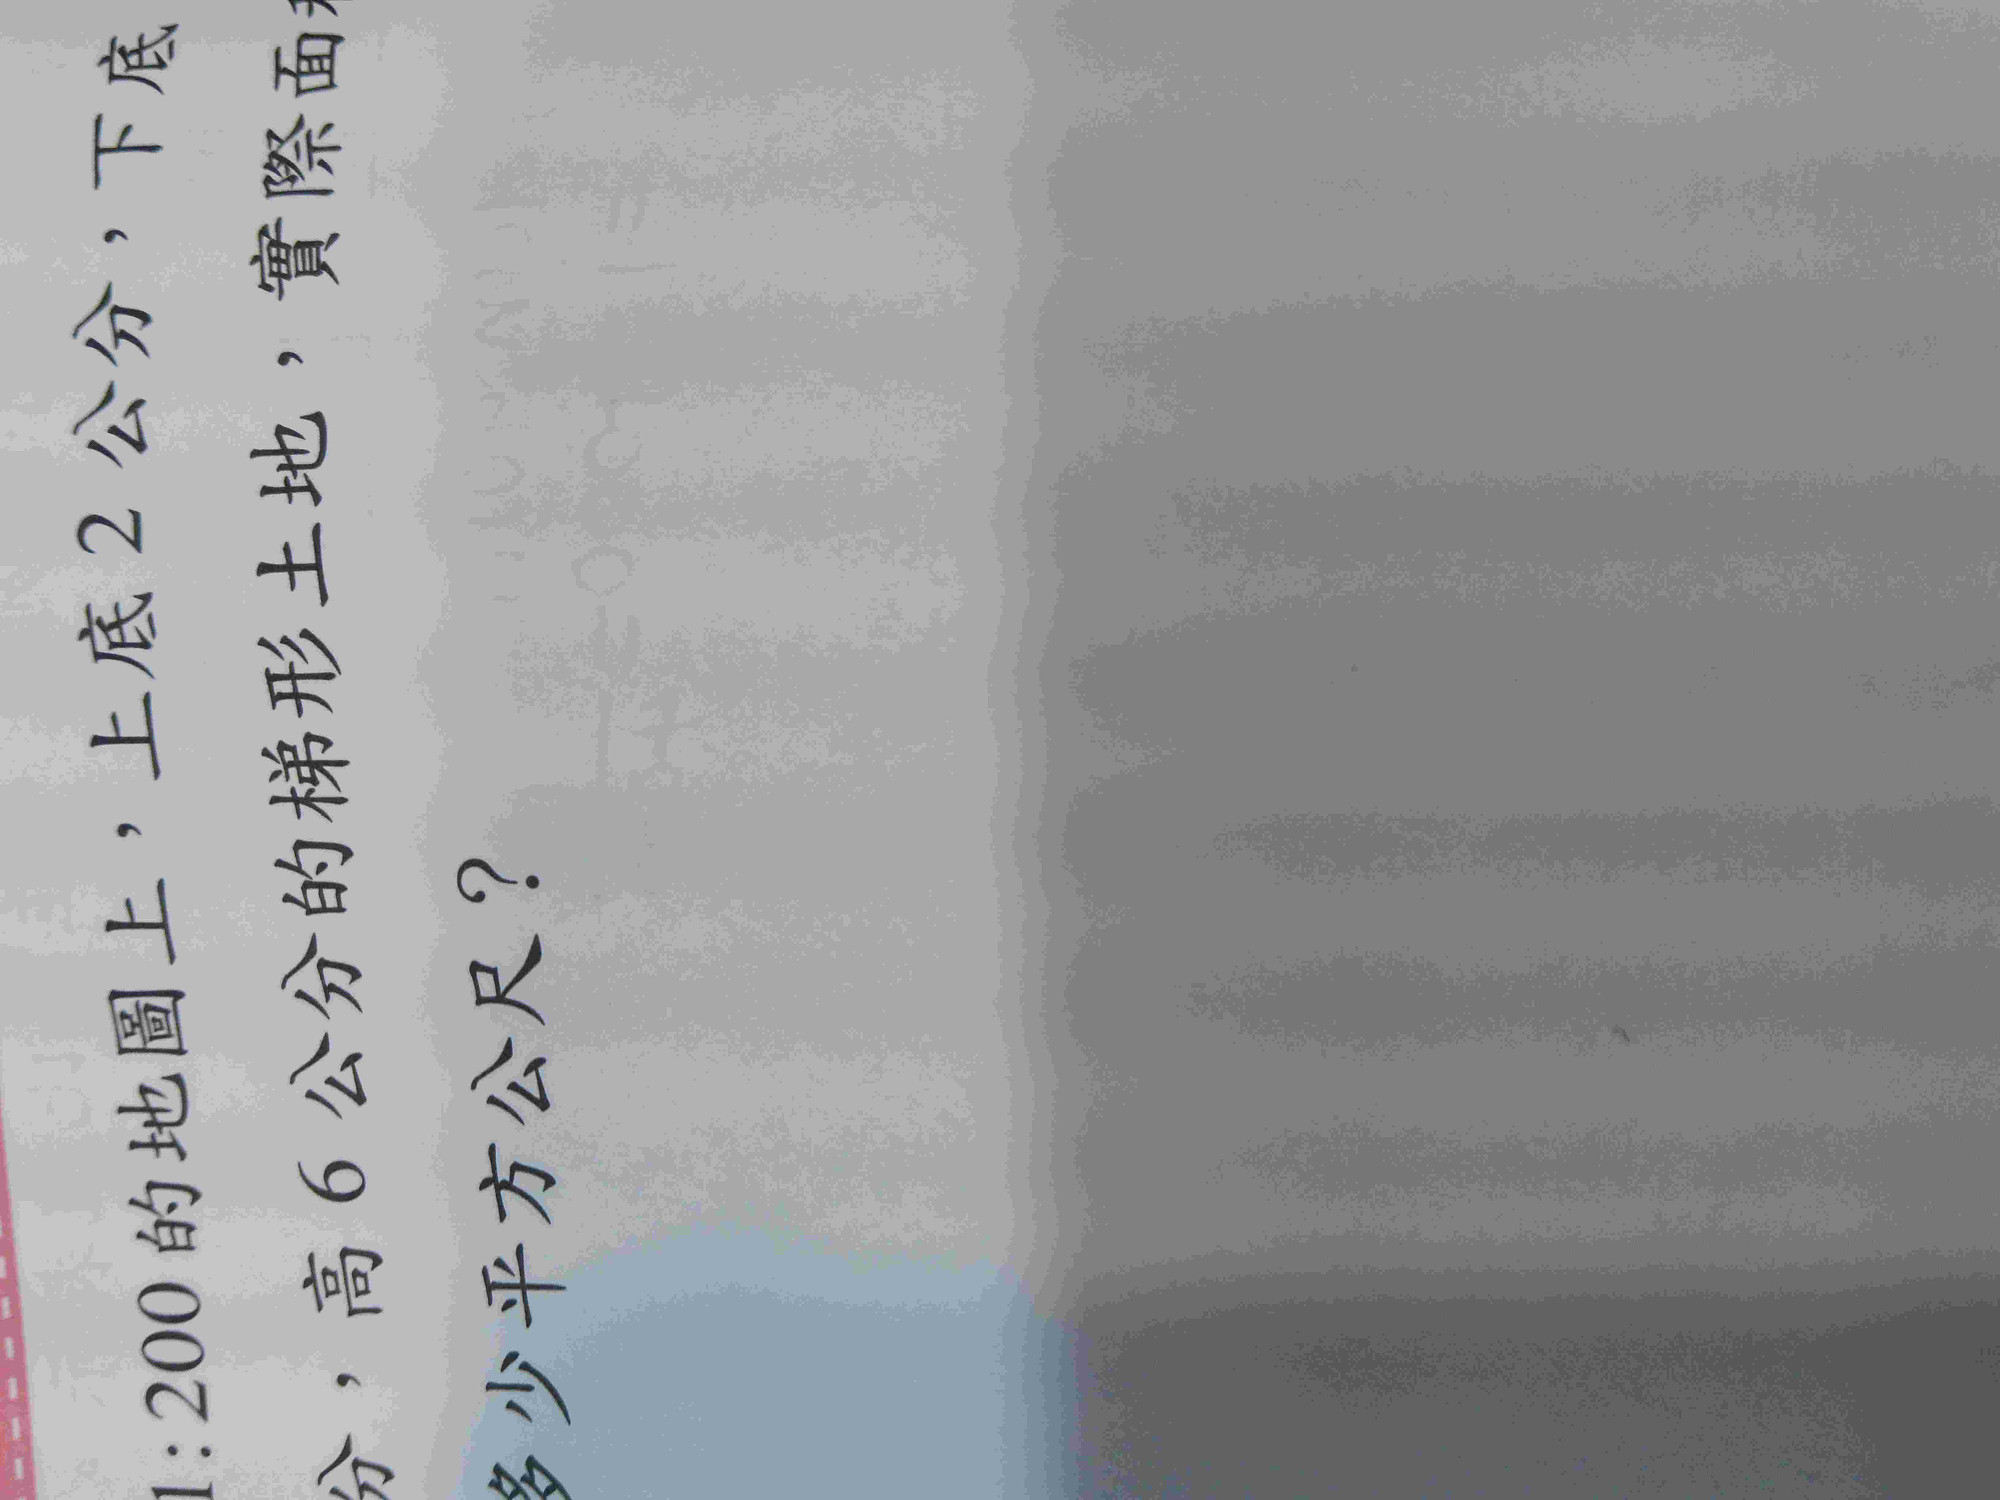 1:200的地圖上，上底2公分，下底
分，高6公分的梯形土地，實際面
多少平方公尺？